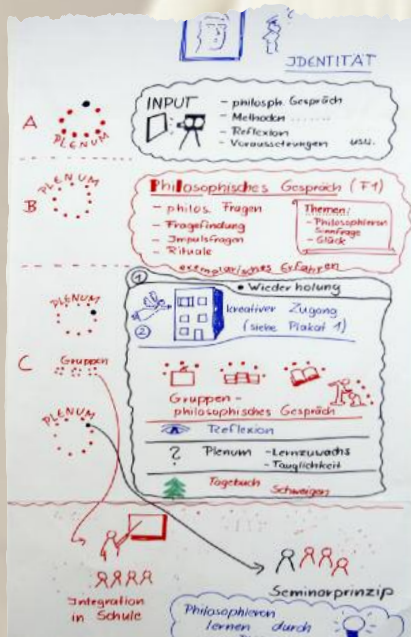 IDENTITÄT
A
PLENUM
INPUT
- philosph. Gespräch
- Methoden ........
- Reflexion
- Voraussetzungen usw.
B
PLENUM
Philosophisches Gespräch (F1)
- philos. Fragen
- Fragefindung
- Impulsfragen
- Rituale
Themen:
- Philosophieren
Sinnfrage
- Glück
exemplarisches Erfahren
C
PLENUM
1
• Wiederholung
2
kreativer Zugang
(siehe Plakat 1)
Gruppen
Gruppen -
philosophisches Gespräch
PLENUM
Reflexion
? Plenum - Lernzuwachs
- Tauglichkeit
Tagebuch Schweigen
Integration
in Schule
Seminarprinzip
Philosophieren
lernen durch